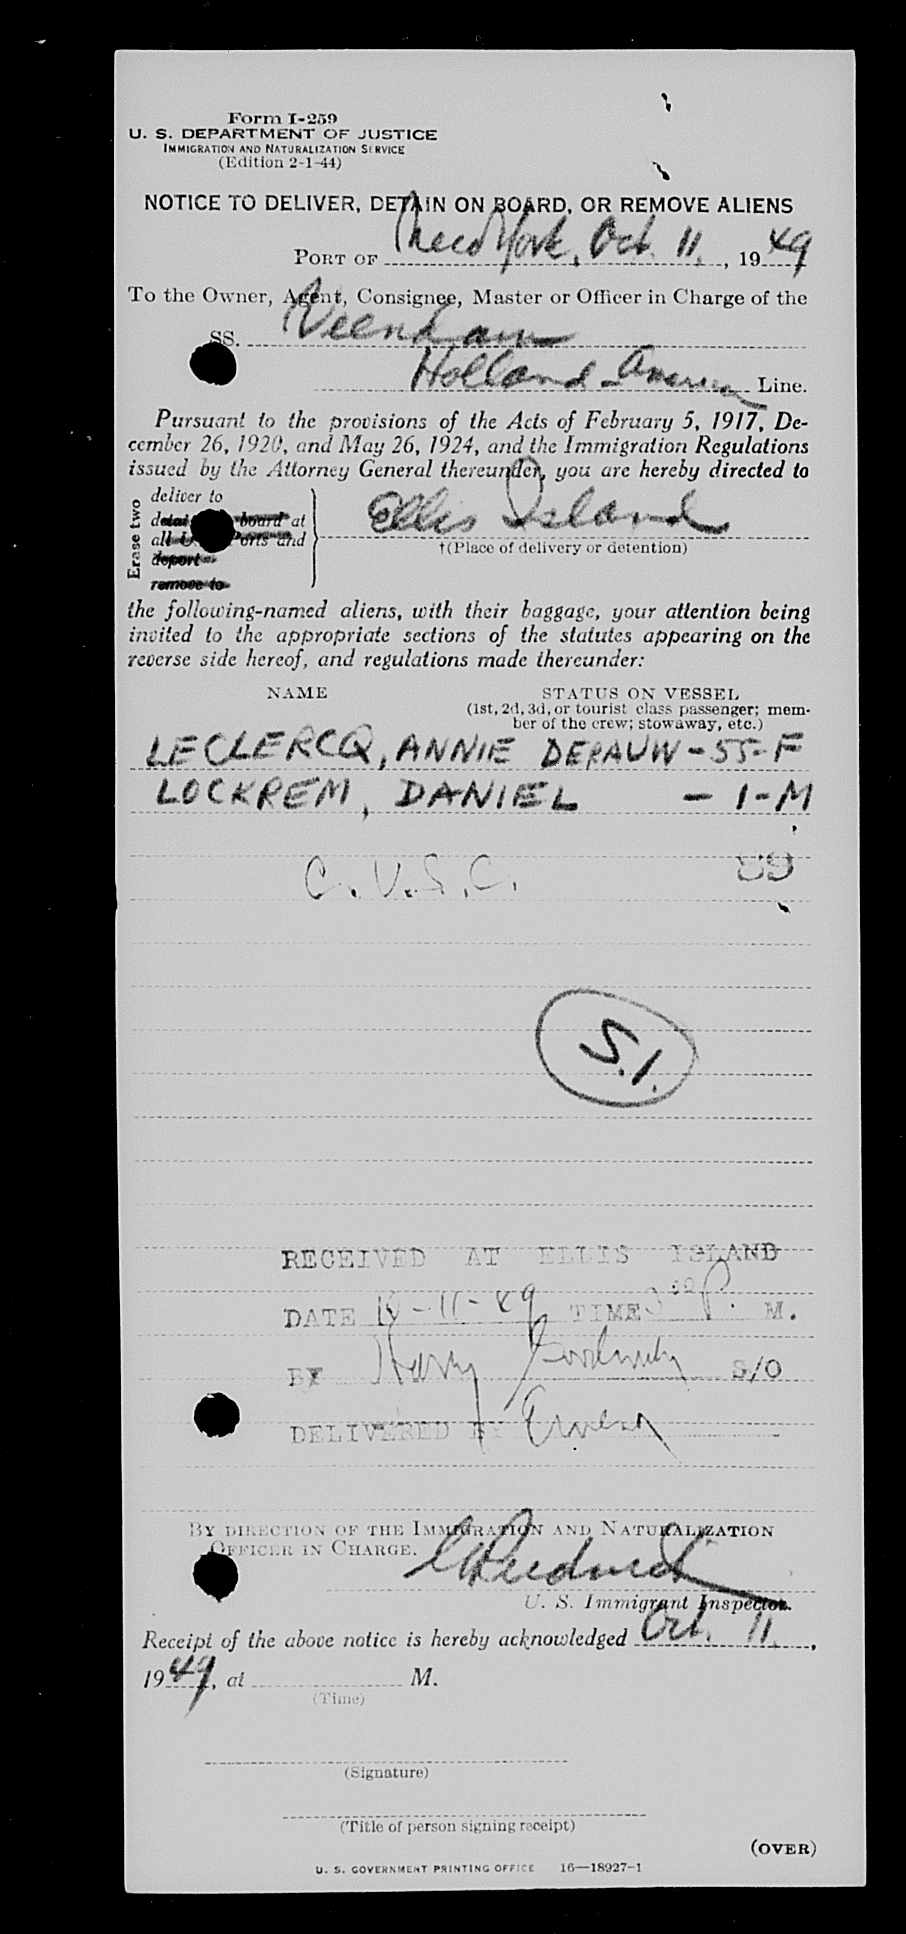 Form I-259
U. S. DEPARTMENT OF JUSTICE
IMMIGRATION AND NATURALIZATION SERVICE
(Edition 2-1-44)
NOTICE TO DELIVER, DETAIN ON BOARD, OR REMOVE ALIENS
PORT OF New York, Oct. 11, 1949
To the Owner, Agent, Consignee, Master or Officer in Charge of the
SS. Veendam
Holland America Line.
Pursuant to the provisions of the Acts of February 5, 1917, De-
cember 26, 1920, and May 26, 1924, and the Immigration Regulations
issued by the Attorney General thereunder, you are hereby directed to
Erase two
deliver to
detain board at
all U Ports and
deport
remove to
Ellis Island
†(Place of delivery or detention)
the following-named aliens, with their baggage, your attention being
invited to the appropriate sections of the statutes appearing on the
reverse side hereof, and regulations made thereunder:
NAME
STATUS ON VESSEL
(1st, 2d, 3d, or tourist class passenger; mem-
ber of the crew; stowaway, etc.)
LECLERCQ, ANNIE DEPAUW - 55-F
LOCKREM, DANIEL - 1-M
C.V.S.C. 59
S.I.
RECEIVED AT ELLIS ISLAND
DATE 10-11-49 TIME P. M.
BY Harry S/O
DELIVERED BY
BY DIRECTION OF THE IMMIGRATION AND NATURALIZATION
OFFICER IN CHARGE.
U. S. Immigrant Inspector.
Receipt of the above notice is hereby acknowledged Oct. 11,
1949, at M.
(Time)
(Signature)
(Title of person signing receipt)
(OVER)
U. S. GOVERNMENT PRINTING OFFICE 16—18927-1